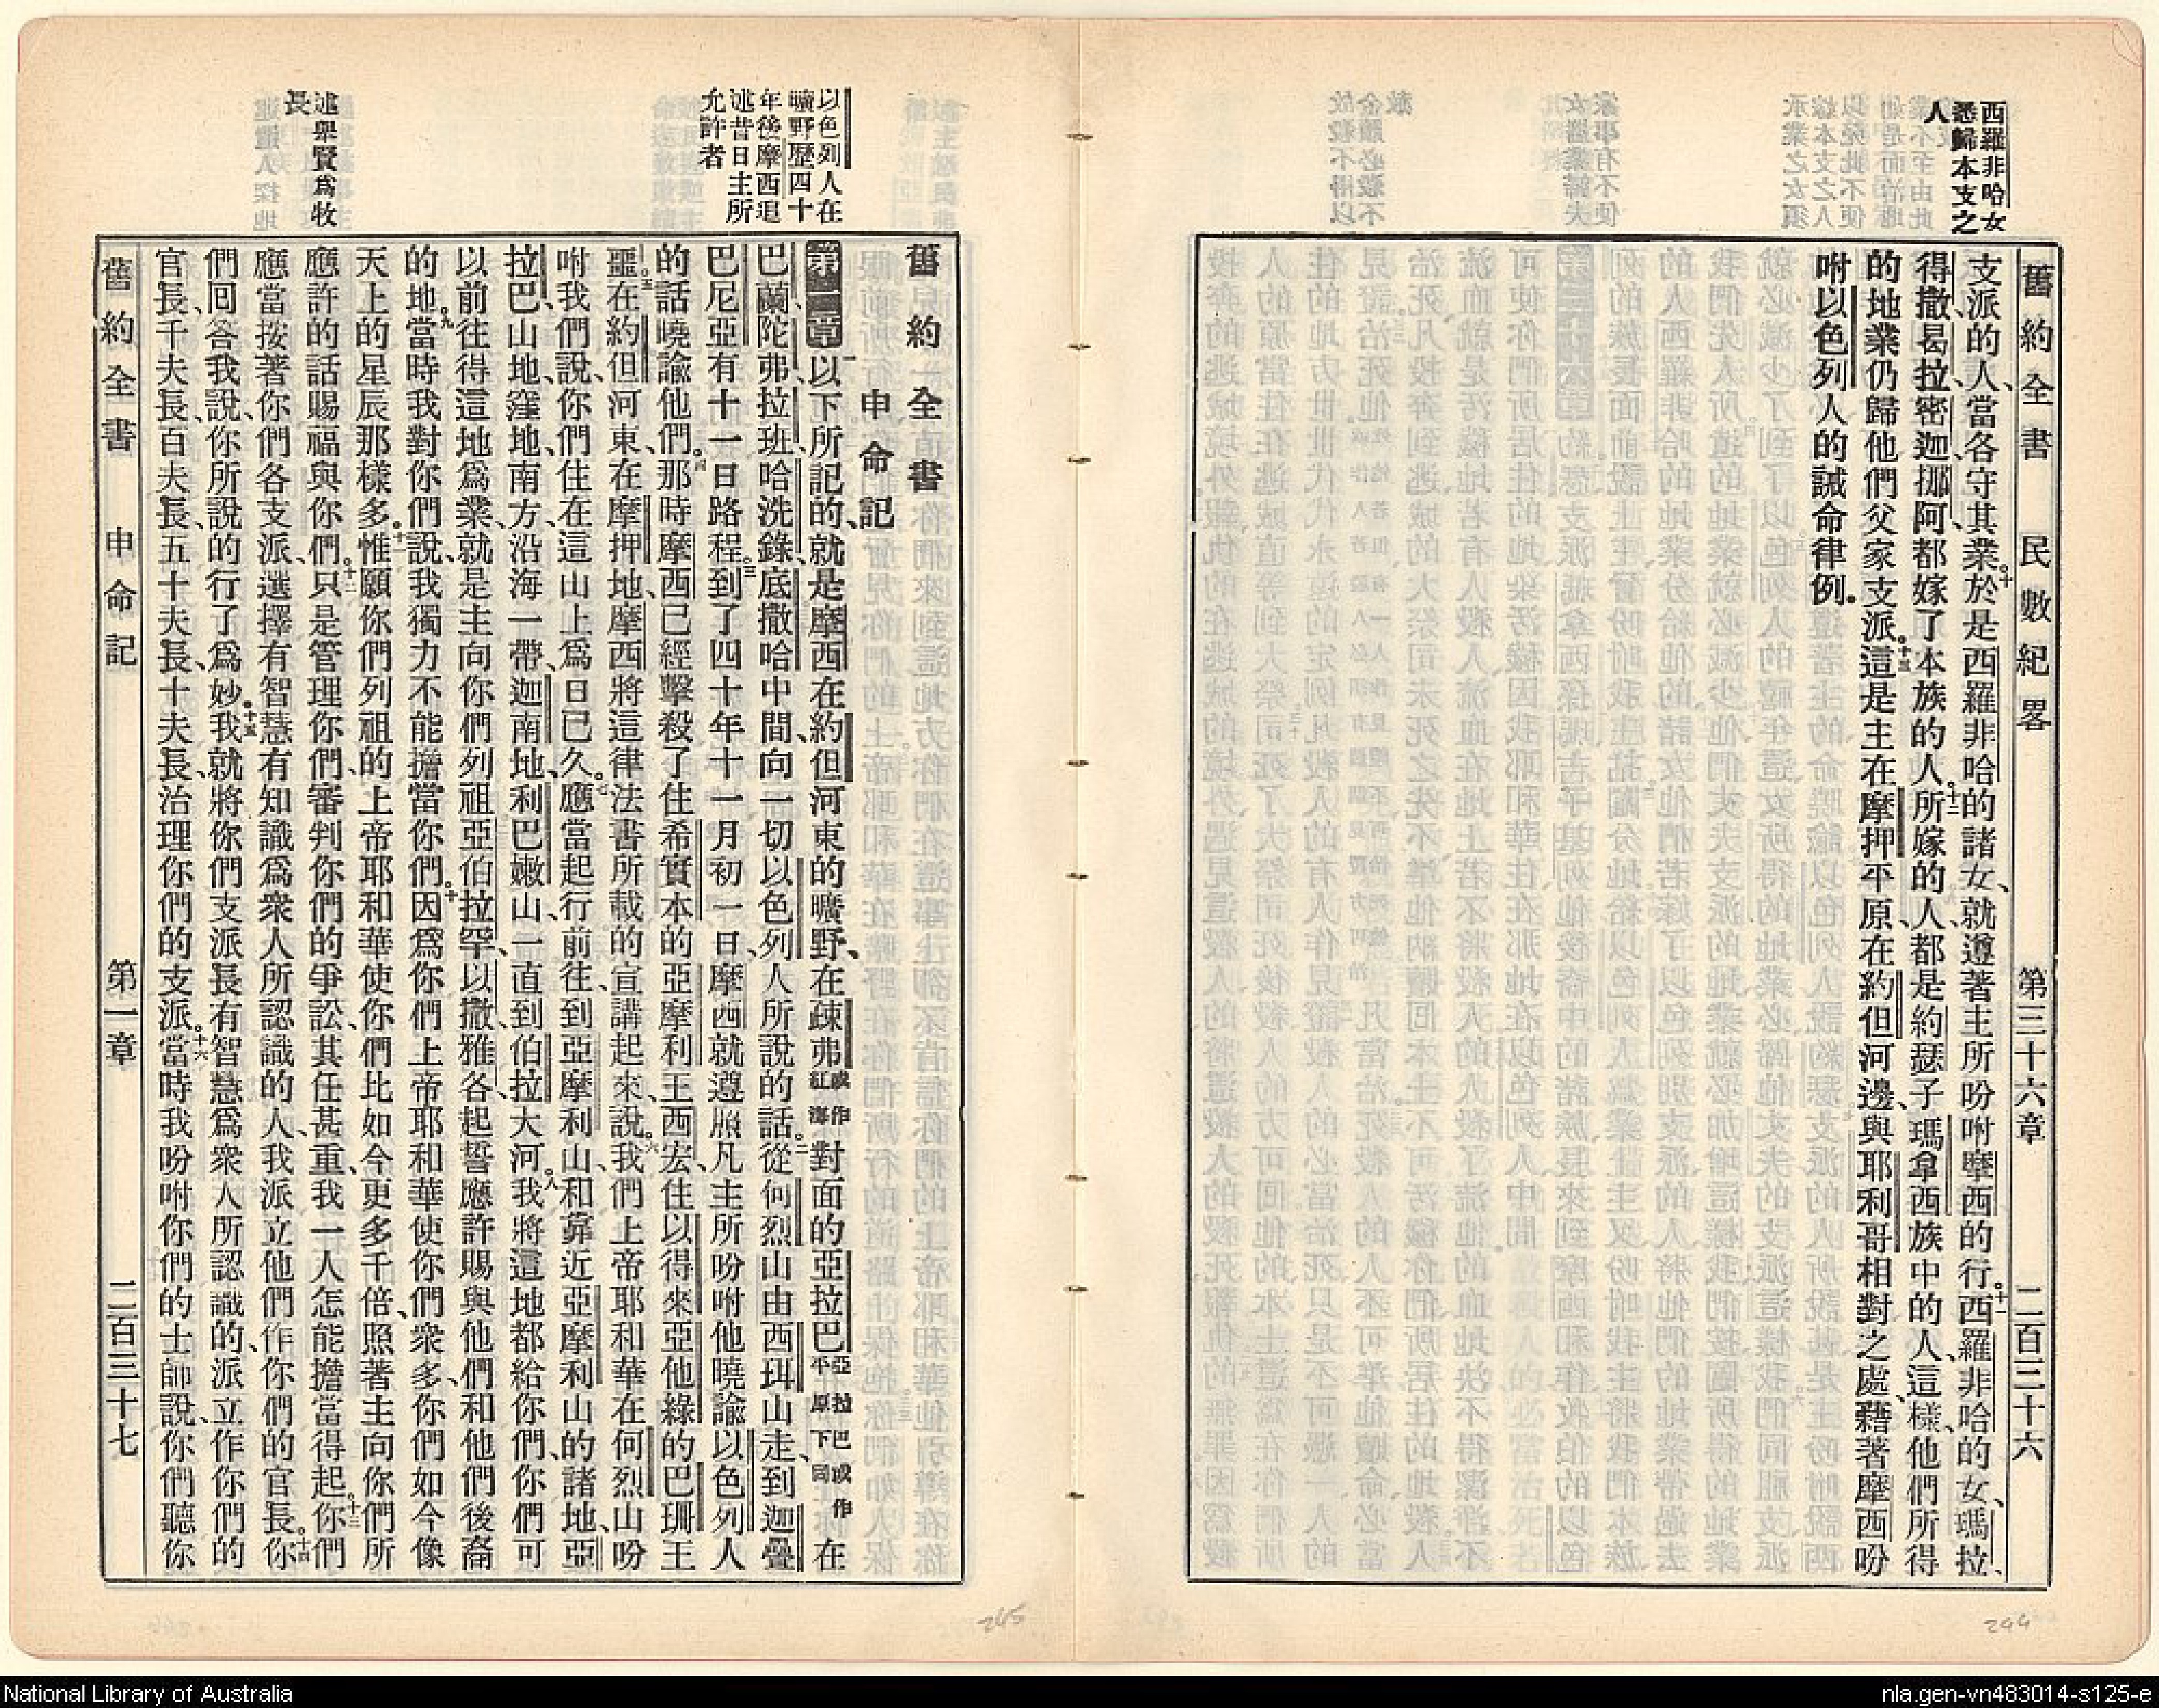 西羅非哈女
悉歸本支之
人
舊約全書 民數紀畧 第三十六章 二百三十六
支派的人、當各守其業。十於是西羅非哈的諸女、就遵著主所吩咐摩西的行。十一西羅非哈的女、瑪拉、
得撒、曷拉、密迦、挪阿、都嫁了本族的人。十二所嫁的人、都是約瑟子瑪拿西族中的人、這樣、他們所得
的地業仍歸他們父家支派。十三這是主在摩押平原在約但河邊、與耶利哥相對之處、藉著摩西吩
咐以色列人的誡命律例。
244
以色列人在
曠野歷四十
年後摩西追
述昔日主所
允許者
述舉賢爲牧
長
舊約全書
申命記
第一章 一以下所記的、就是摩西在約但河東的曠野、在疎弗或作紅海對面的亞拉巴亞拉巴或作平原下同在
巴蘭、陀弗、拉班、哈洗錄、底撒哈中間、向一切以色列人所說的話。二從何烈山由西珥山走、到迦疊
巴尼亞有十一日路程。三到了四十年十一月初一日、摩西就遵照凡主所吩咐他曉諭以色列人
的話曉諭他們。四那時摩西已經擊殺了住希實本的亞摩利王西宏、住以得來亞他綠的巴珊王
噩。五在約但河東、在摩押地、摩西將這律法書所載的宣講起來、說。六我們上帝耶和華在何烈山吩
咐我們說、你們住在這山上爲日已久。七應當起行前往、到亞摩利山、和靠近亞摩利山的諸地、亞
拉巴、山地、窪地、南方、沿海一帶、迦南地、利巴嫩山、一直到伯拉大河。八我將這地都給你們、你們可
以前往得這地爲業、就是主向你們列祖亞伯拉罕、以撒、雅各、起誓應許賜與他們和他們後裔
的地。九當時我對你們說、我獨力不能擔當你們。十因爲你們上帝耶和華使你們衆多、你們如今像
天上的星辰那樣多。十一惟願你們列祖的上帝耶和華使你們比如今更多千倍、照著主向你們所
應許的話賜福與你們。十二只是管理你們、審判你們的爭訟、其任甚重、我一人怎能擔當得起。十三你們
應當按著你們各支派、選擇有智慧有知識爲衆人所認識的人、我派立他們作你們的官長。十四你
們回答我說、你所說的行了爲妙。十五我就將你們支派長有智慧爲衆人所認識的、派立作你們的
官長、千夫長、百夫長、五十夫長、十夫長、治理你們的支派。十六當時我吩咐你們的士師說、你們聽你
舊約全書 申命記 第一章 二百三十七
245
National Library of Australia
nla.gen-vn483014-s125-e